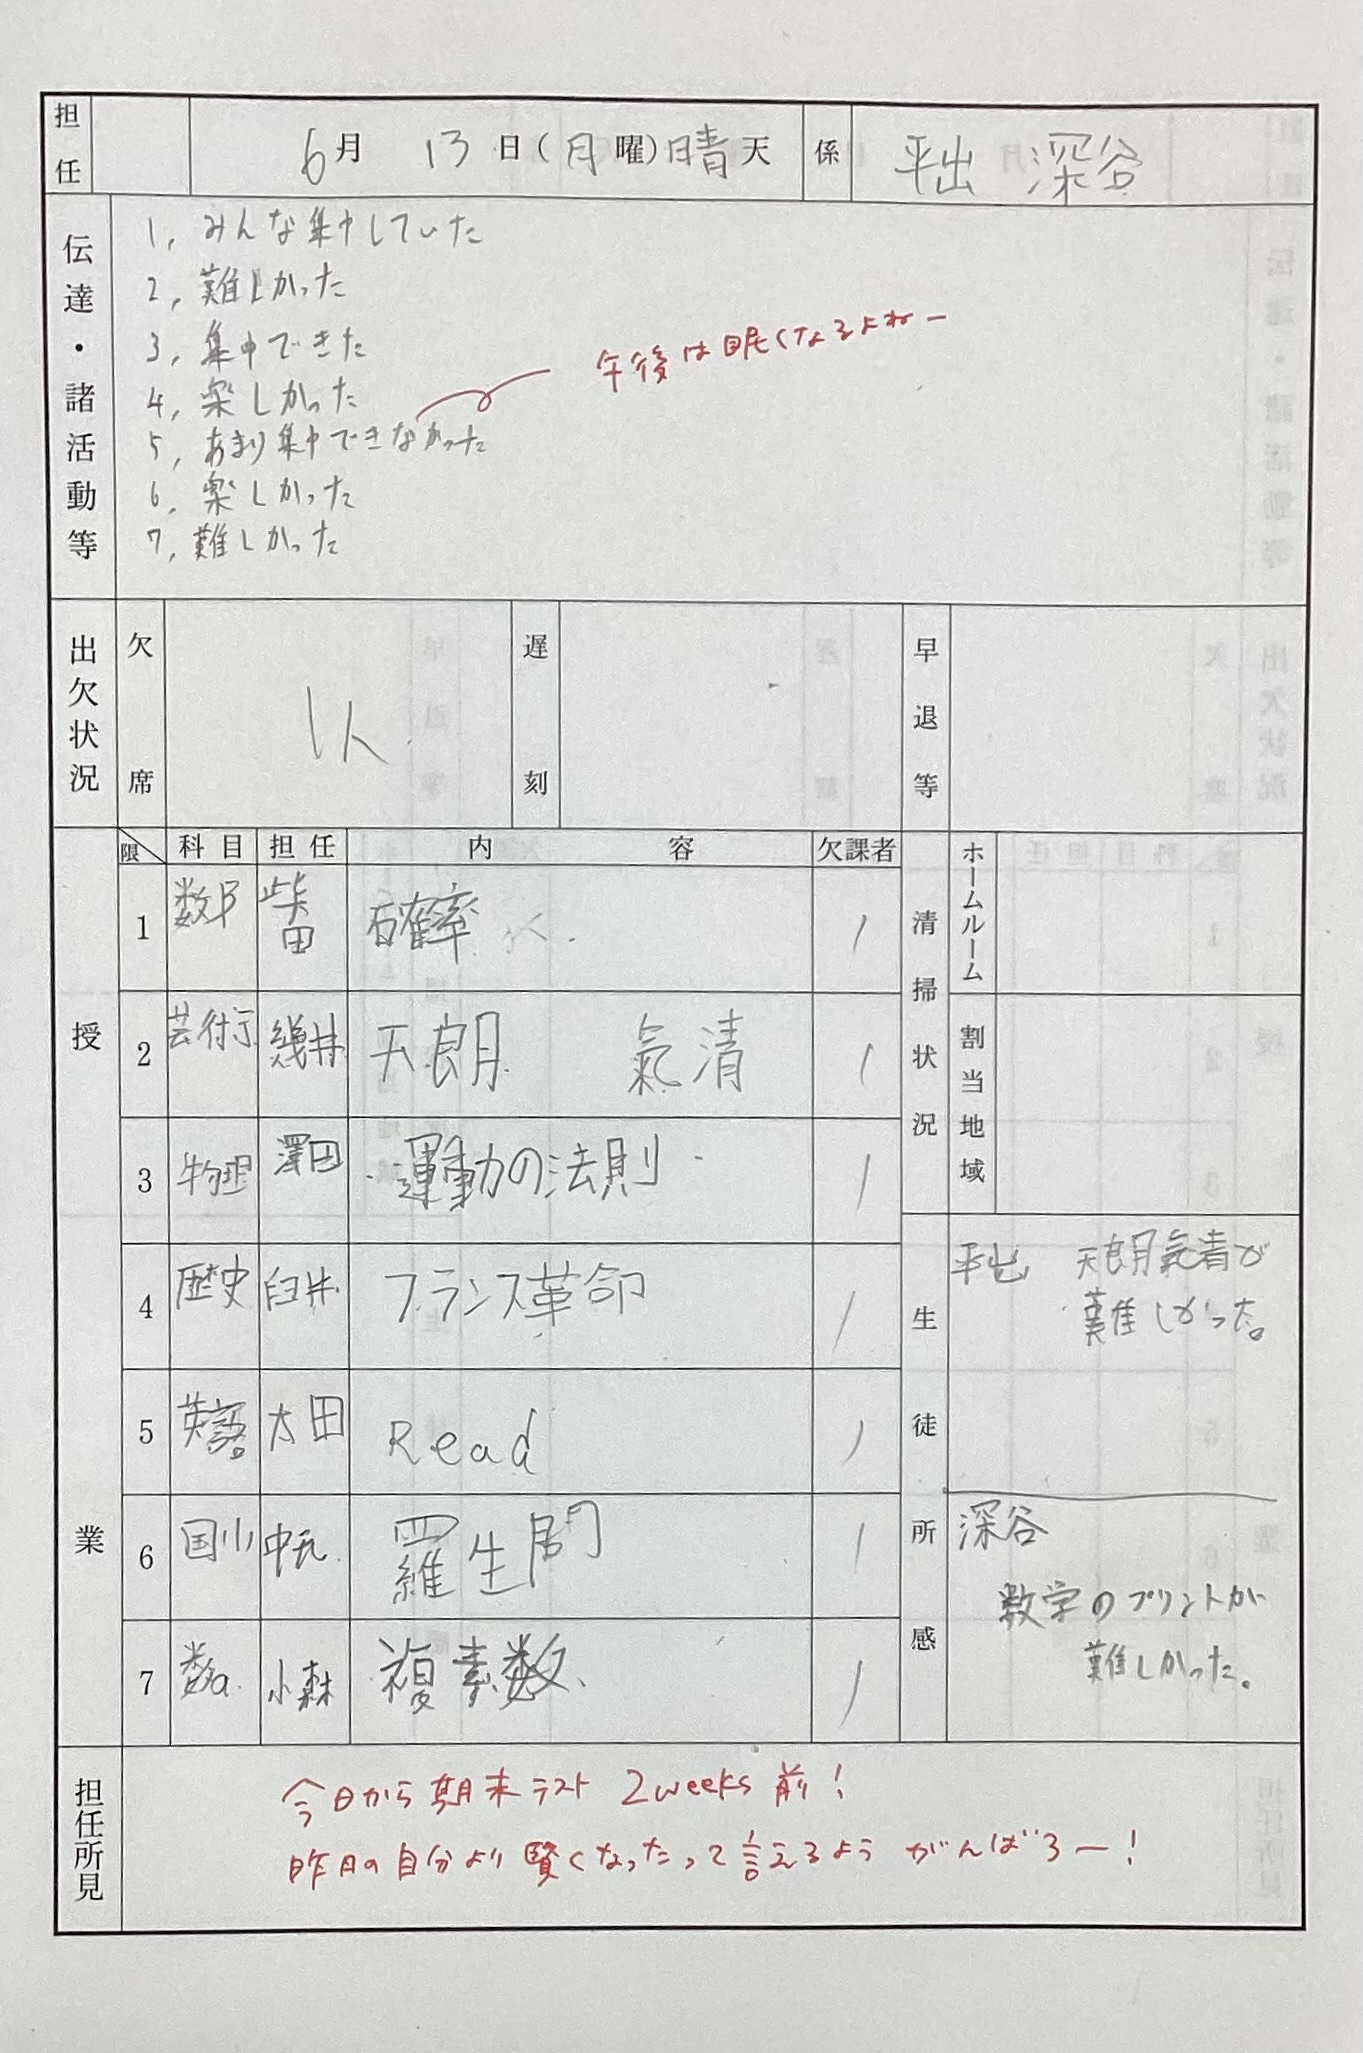 担任 6月 13日(月曜)晴天 係 平出 深谷
伝達・諸活動等
1, みんな集中していた
2, 難しかった
3, 集中できた
4, 楽しかった
5, あまり集中できなかった
午後は眠くなるよねー
6, 楽しかった
7, 難しかった
出欠状況 欠席 1人 遅刻 早退等
授業
限 科目 担任 内容 欠課者
1 数β 柴田 確率 1
2 芸術 幾井 天朗 氣清 1
3 物理 澤田 運動の法則 1
4 歴史 臼井 フランス革命 1
5 英語 太田 Read 1
6 国 羅生門 1
7 数α 小森 複素数 1
清掃状況 ホームルーム
割当地域
生徒所感
平出 天朗氣青が
難しかった。
深谷
数学のプリントが
難しかった。
担任所見
今日から期末テスト 2weeks 前!
昨日の自分より賢くなったって言えるよう がんばろー!